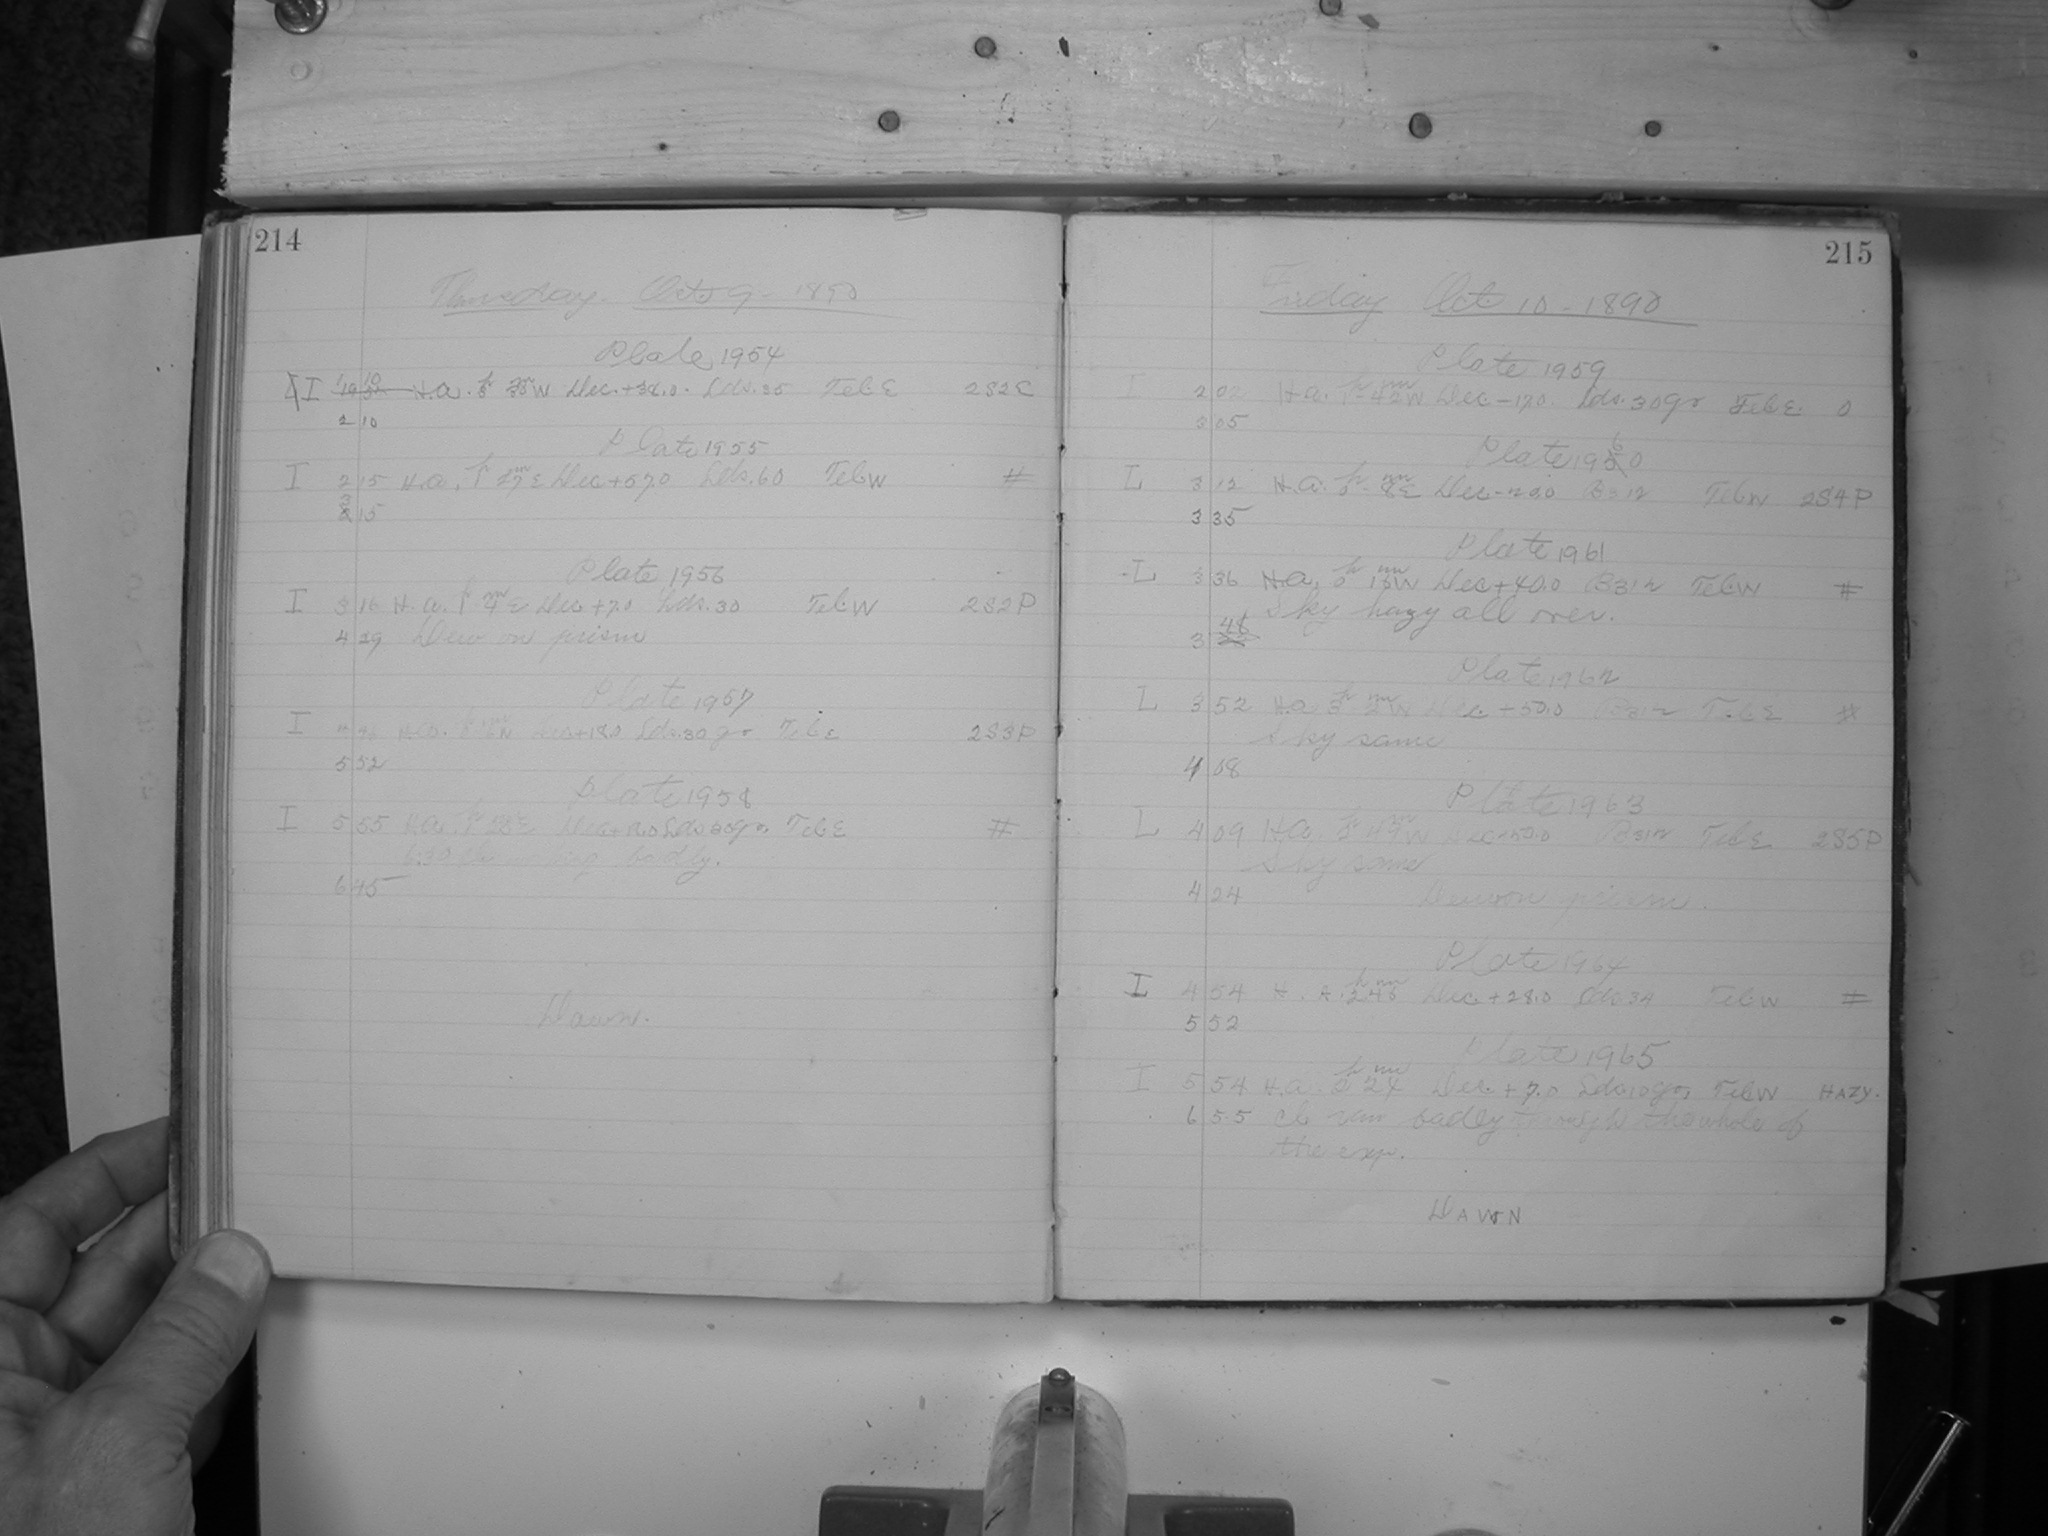 214
Thursday. Oct 9 - 1890
Plate 1954
I H.a. Dec. +38.0. Lds. 35 Tel E 2S2E
2 10
Plate 1955
I 2 15 H.a. 1h 27m E Dec +57.0 Lds. 60 Tel W #
3 15
Plate 1956
I 3 16 H.a. 1h 4m E Dec +7.0 Lds. 30 Tel W 2S2P
4 29 Dew on prism
Plate 1957
I 4 46 H.a. Dec +18.0 Lds. 30 gr Tel E 2S3P
5 52
Plate 1958
I 5 55 H.a. 1h 28m E Tel E #
badly.
6 45
Dawn.
215
Friday Oct 10 - 1890
Plate 1959
I 2 02 H.a. 1h 42m W Dec -17.0. Lds. 30 gr Tel E. 0
3 05
Plate 1960
L 3 12 H.a. 0h 8m E Dec -20.0 B312 Tel W 2S4P
3 35
Plate 1961
L 3 36 H.a. Dec +40.0 B312 Tel W #
Sky hazy all over.
3 48
Plate 1962
L 3 52 H.a. Dec +50.0 B312 Tel E #
Sky same
4 08
Plate 1963
L 4 09 H.a. Dec +50.0 B312 Tel E 2S5P
Sky same
4 24 Dew on prism.
Plate 1964
I 4 54 H.A. Dec. +28.0 Lds 34 Tel W #
5 52
Plate 1965
I 5 54 H.a. 24 Dec. +7.0 Tel W HAZY.
6 55 cl ran badly through the whole of
the exp.
DAWN